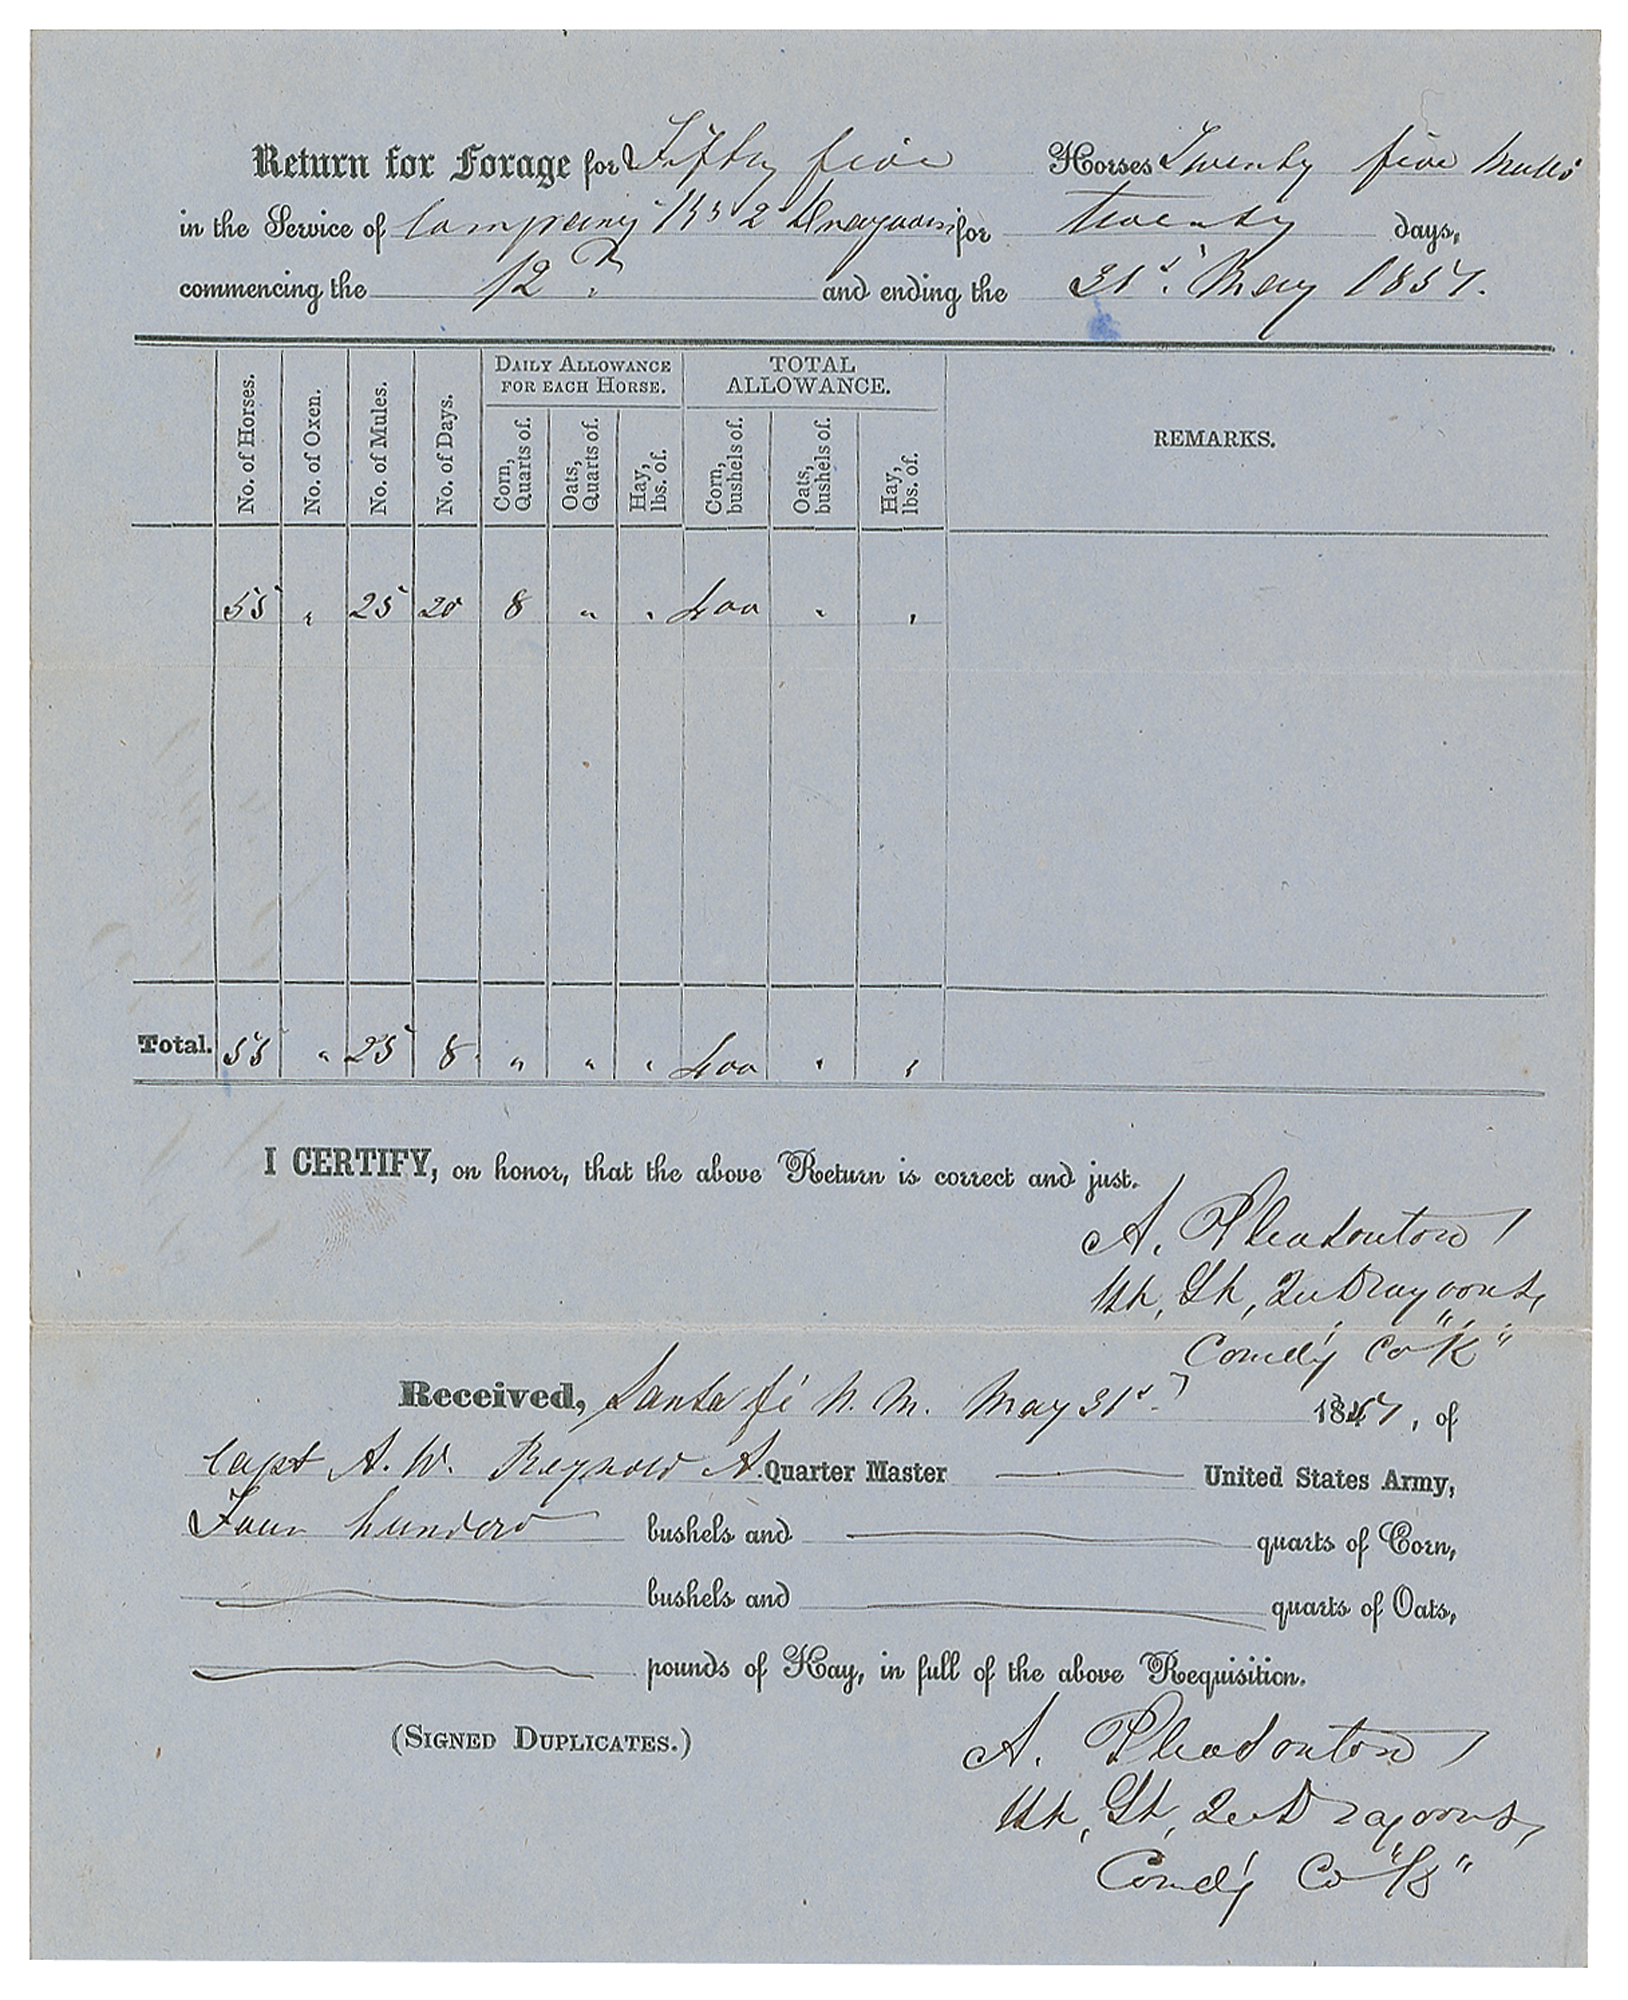 Return for Forage for Fifty five Horses Twenty five Mules
in the Service of Company 2d Dragoons for twenty days,
commencing the 12th and ending the 31st May 1851.
DAILY ALLOWANCE FOR EACH HORSE.
TOTAL ALLOWANCE.
No. of Horses.
No. of Oxen.
No. of Mules.
No. of Days.
Corn, Quarts of.
Oats, Quarts of.
Hay, lbs. of.
Corn, bushels of.
Oats, bushels of.
Hay, lbs. of.
REMARKS.
55 " 25 20 8 " " 400 " "
Total. 55 " 25 8 " " " 400 " "
I CERTIFY, on honor, that the above Return is correct and just.
A. Pleasonton
1st, Lt, 2nd Dragoons,
Comd'g Co "K"
Received, Santa fé N. M. May 31st 1851, of
Capt A. W. Reynold A. Quarter Master United States Army,
Four hundred bushels and quarts of Corn,
bushels and quarts of Oats,
pounds of Hay, in full of the above Requisition.
(SIGNED DUPLICATES.)
A. Pleasonton
1st, Lt, 2nd Dragoons,
Comd'g Co